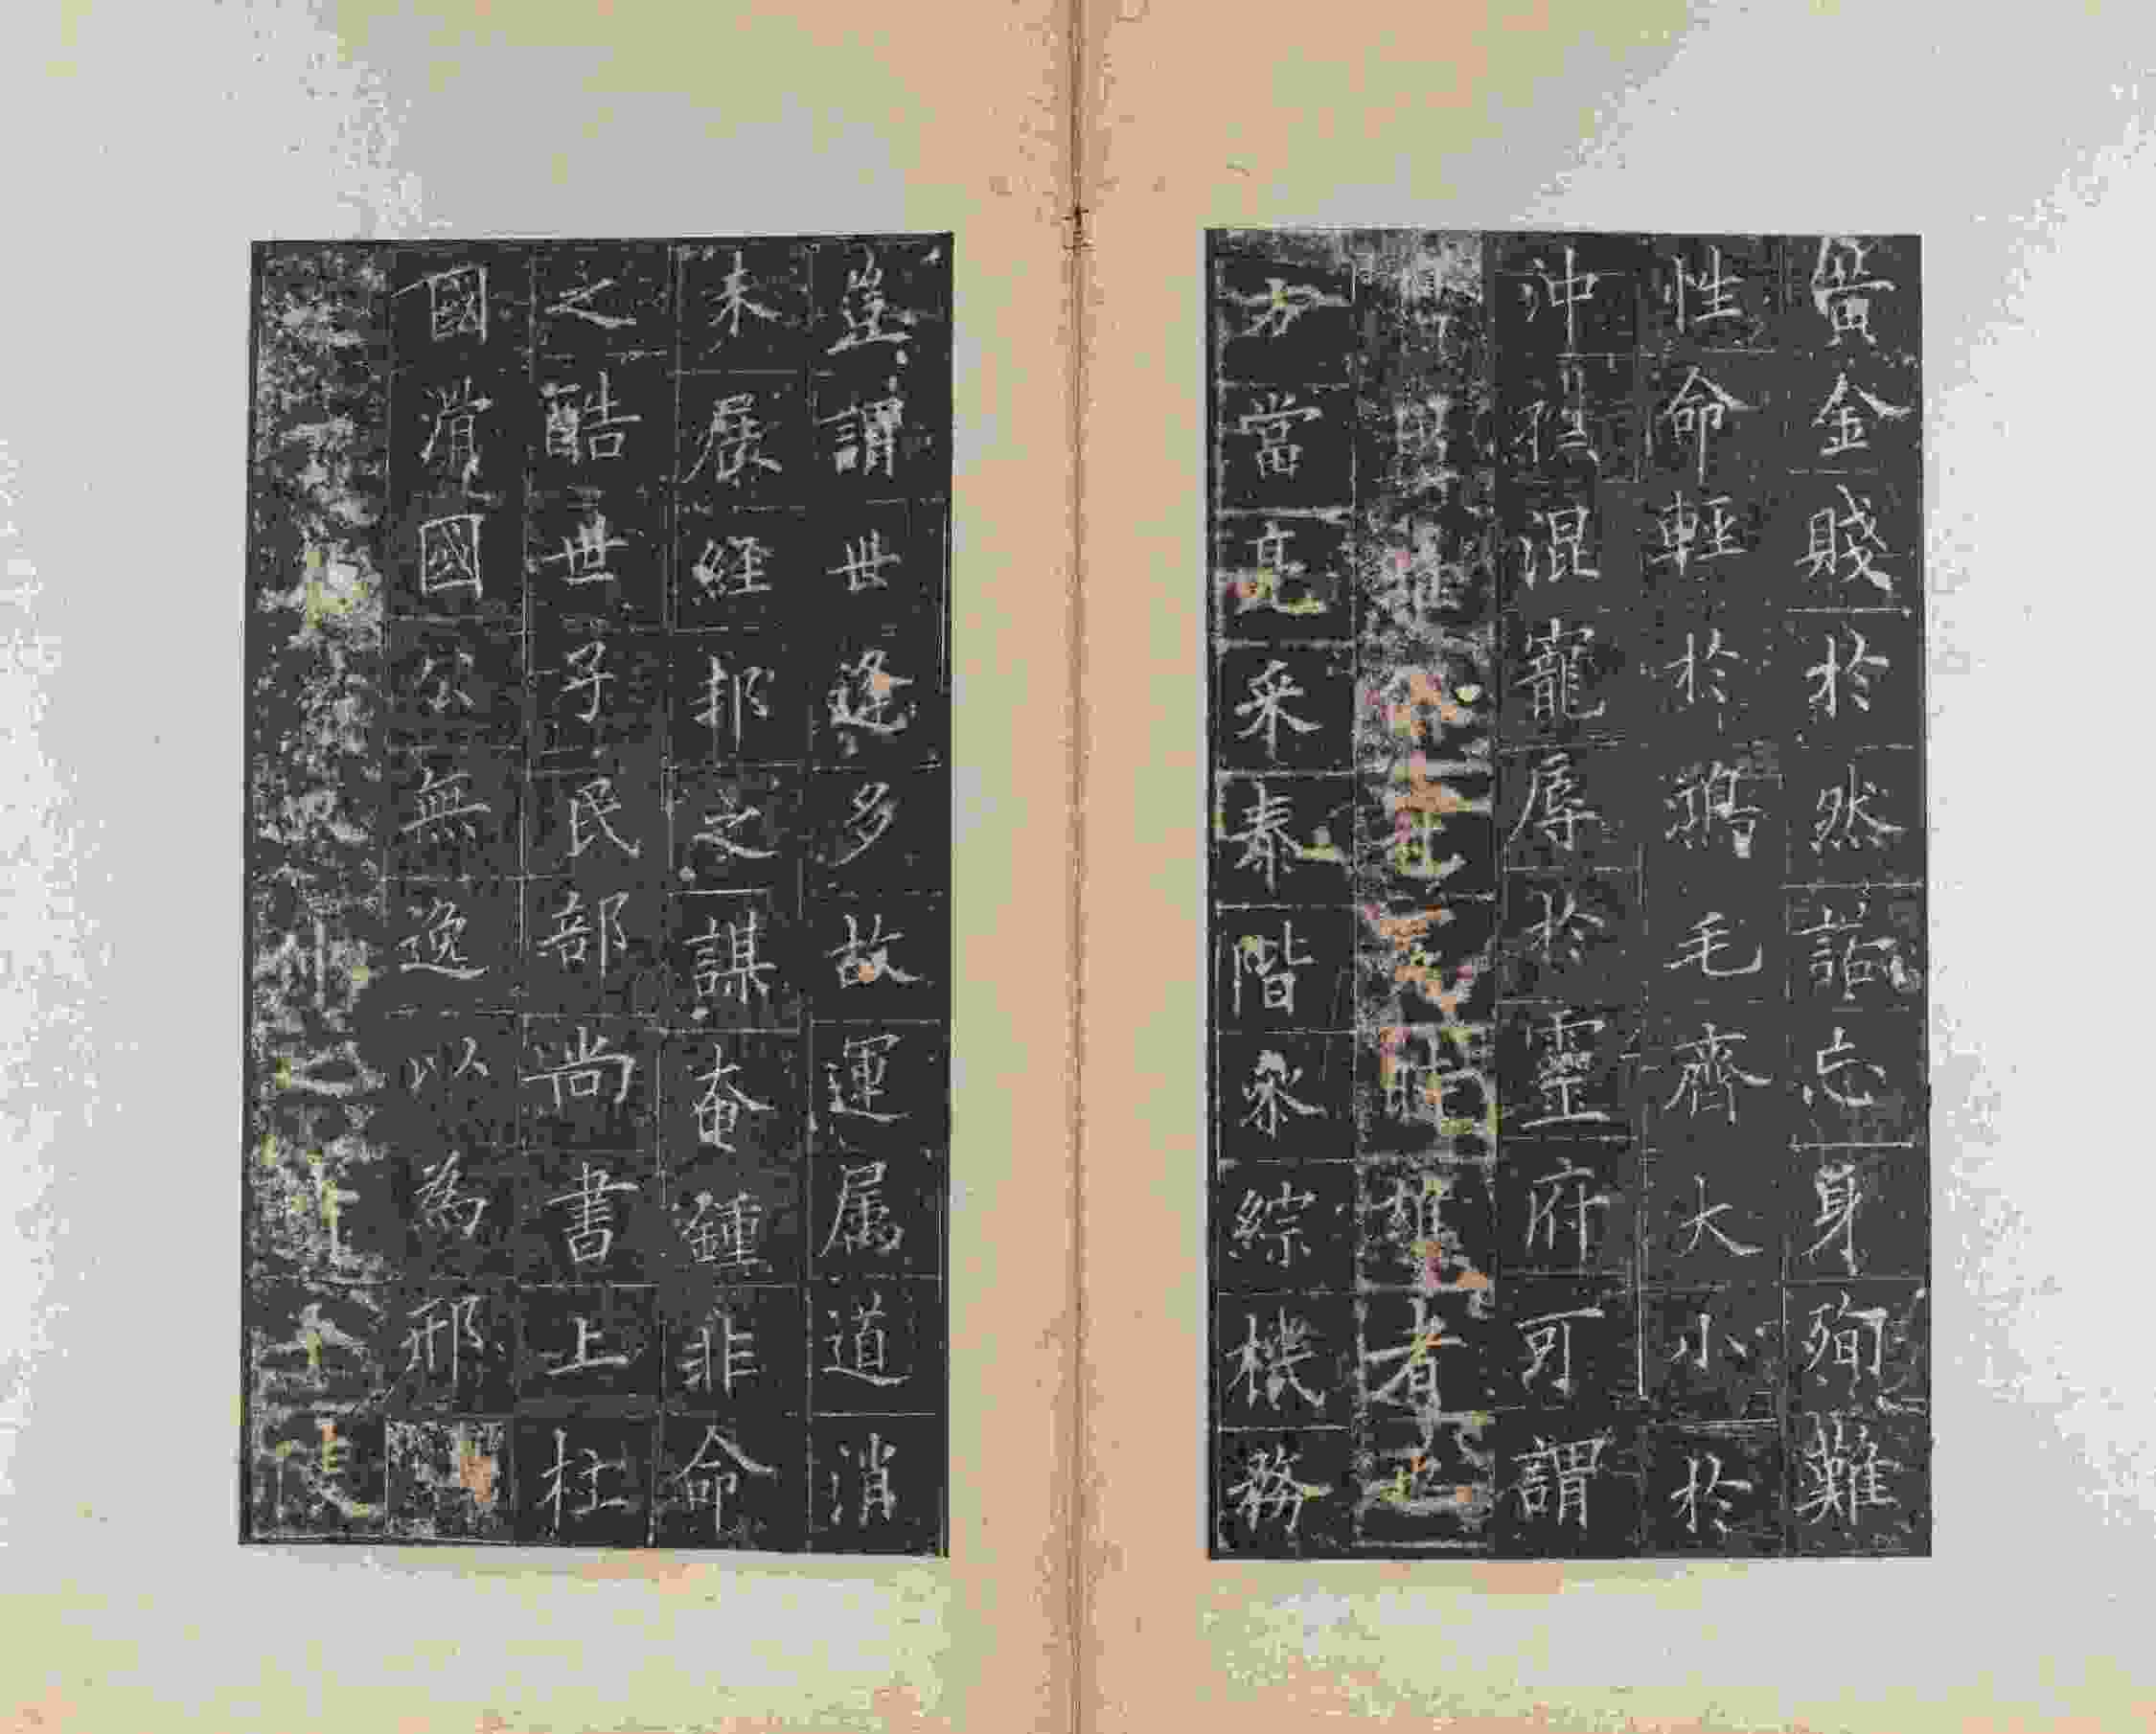 黃金賤於然諾忘身殉難
性命輕於鴻毛齊大小於
沖襟混寵辱於靈府可謂
時雄者也
方當亮采泰階參綜機務
豈謂世逢多故運属道消
未展經邦之謀奄鍾非命
之酷世子民部尚書上柱
國滑國公無逸以為邢
仲之平陵